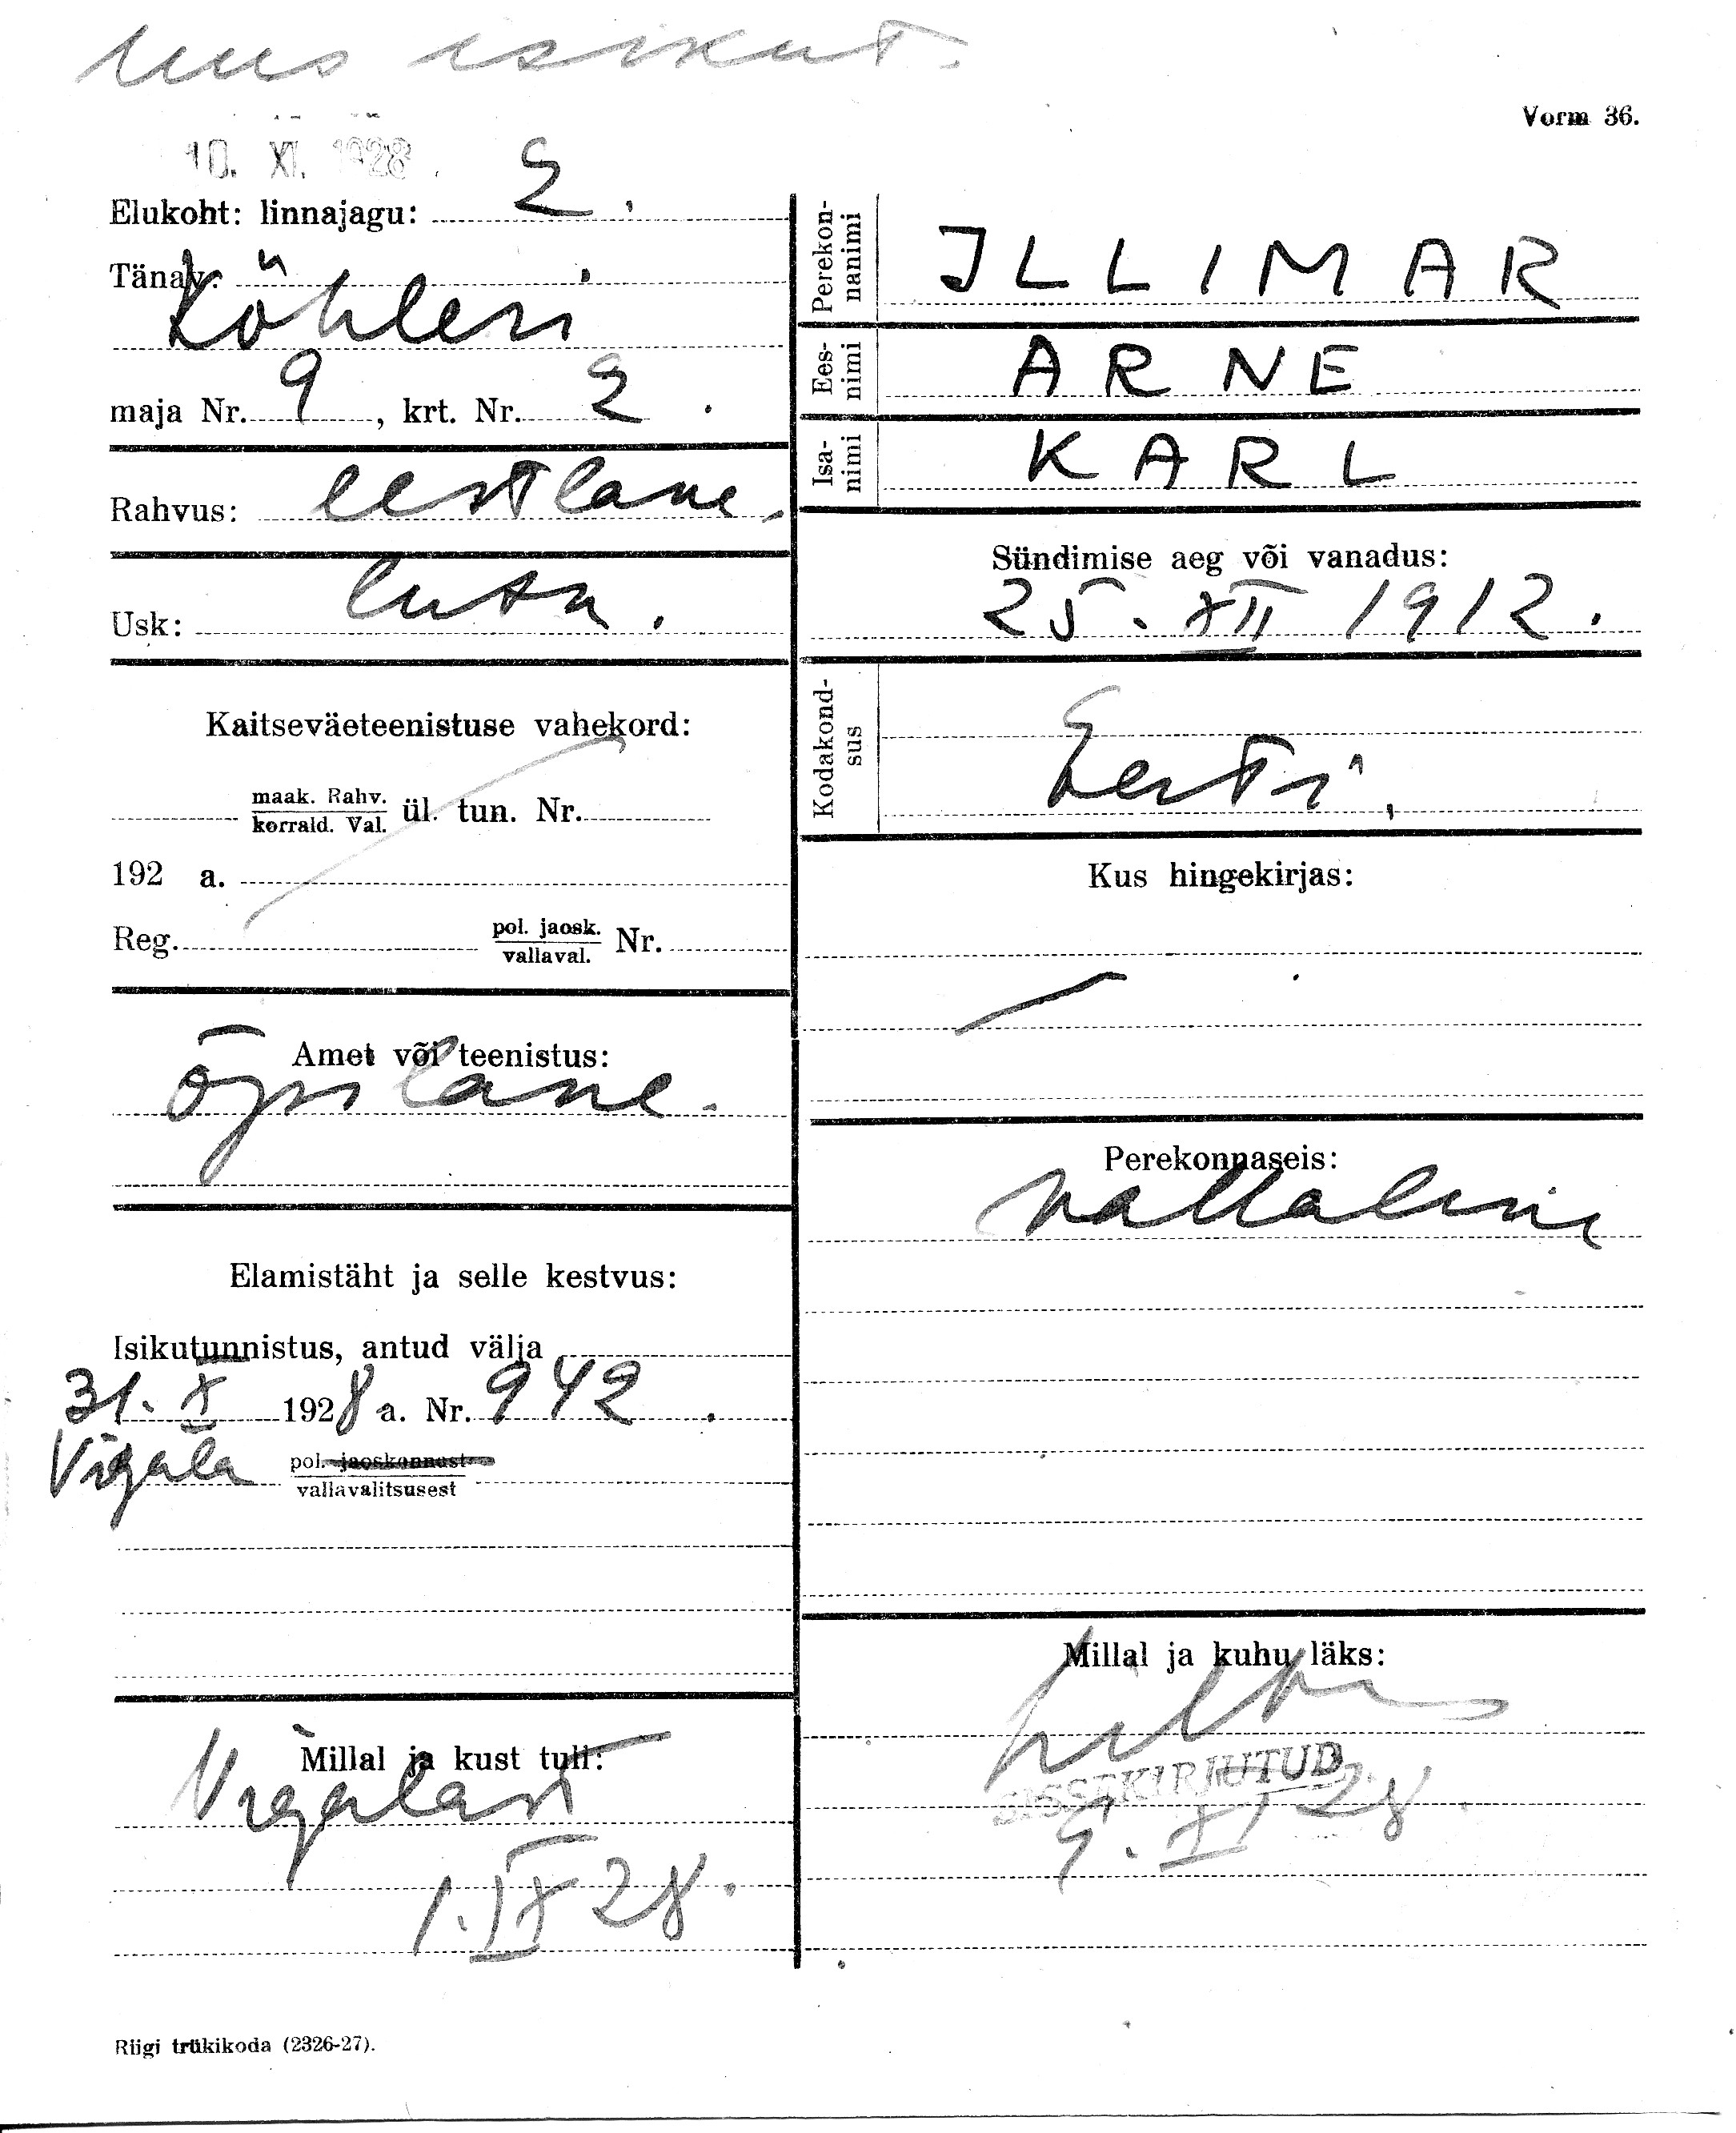 uus isikut.
Vorm 36.
10. XI. 1928.
Elukoht: linnajagu: 2.
Tänav:
Köhleri
maja Nr. 9, krt. Nr. 2.
Rahvus: eestlane.
Usk: luter.
Kaitseväeteenistuse vahekord:
maak. Rahv.
korrald. Val. ül. tun. Nr.
192 a.
Reg. pol. jaosk. Nr.
vallaval.
Amet või teenistus:
õpilane.
Elamistäht ja selle kestvus:
Isikutunnistus, antud välja
31. X 1928 a. Nr. 942.
Vigala pol. jaoskonnast
vallavalitsusest
Millal ja kust tuli:
Vigalast
1. IX 28.
Perekon-
nanimi
ILLIMAR
Ees-
nimi
ARNE
Isa-
nimi
KARL
Sündimise aeg või vanadus:
25. XII 1912.
Kodakond-
sus
Eesti,
Kus hingekirjas:
Perekonnaseis:
vallaline
Millal ja kuhu läks:
SISSEKIRJUTUD
9. XI 28.
Riigi trükikoda (2326-27).